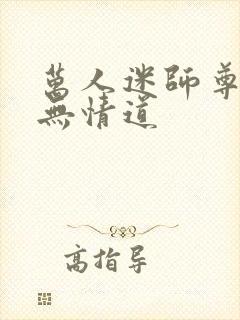 萬人迷師尊
無情道
高指导